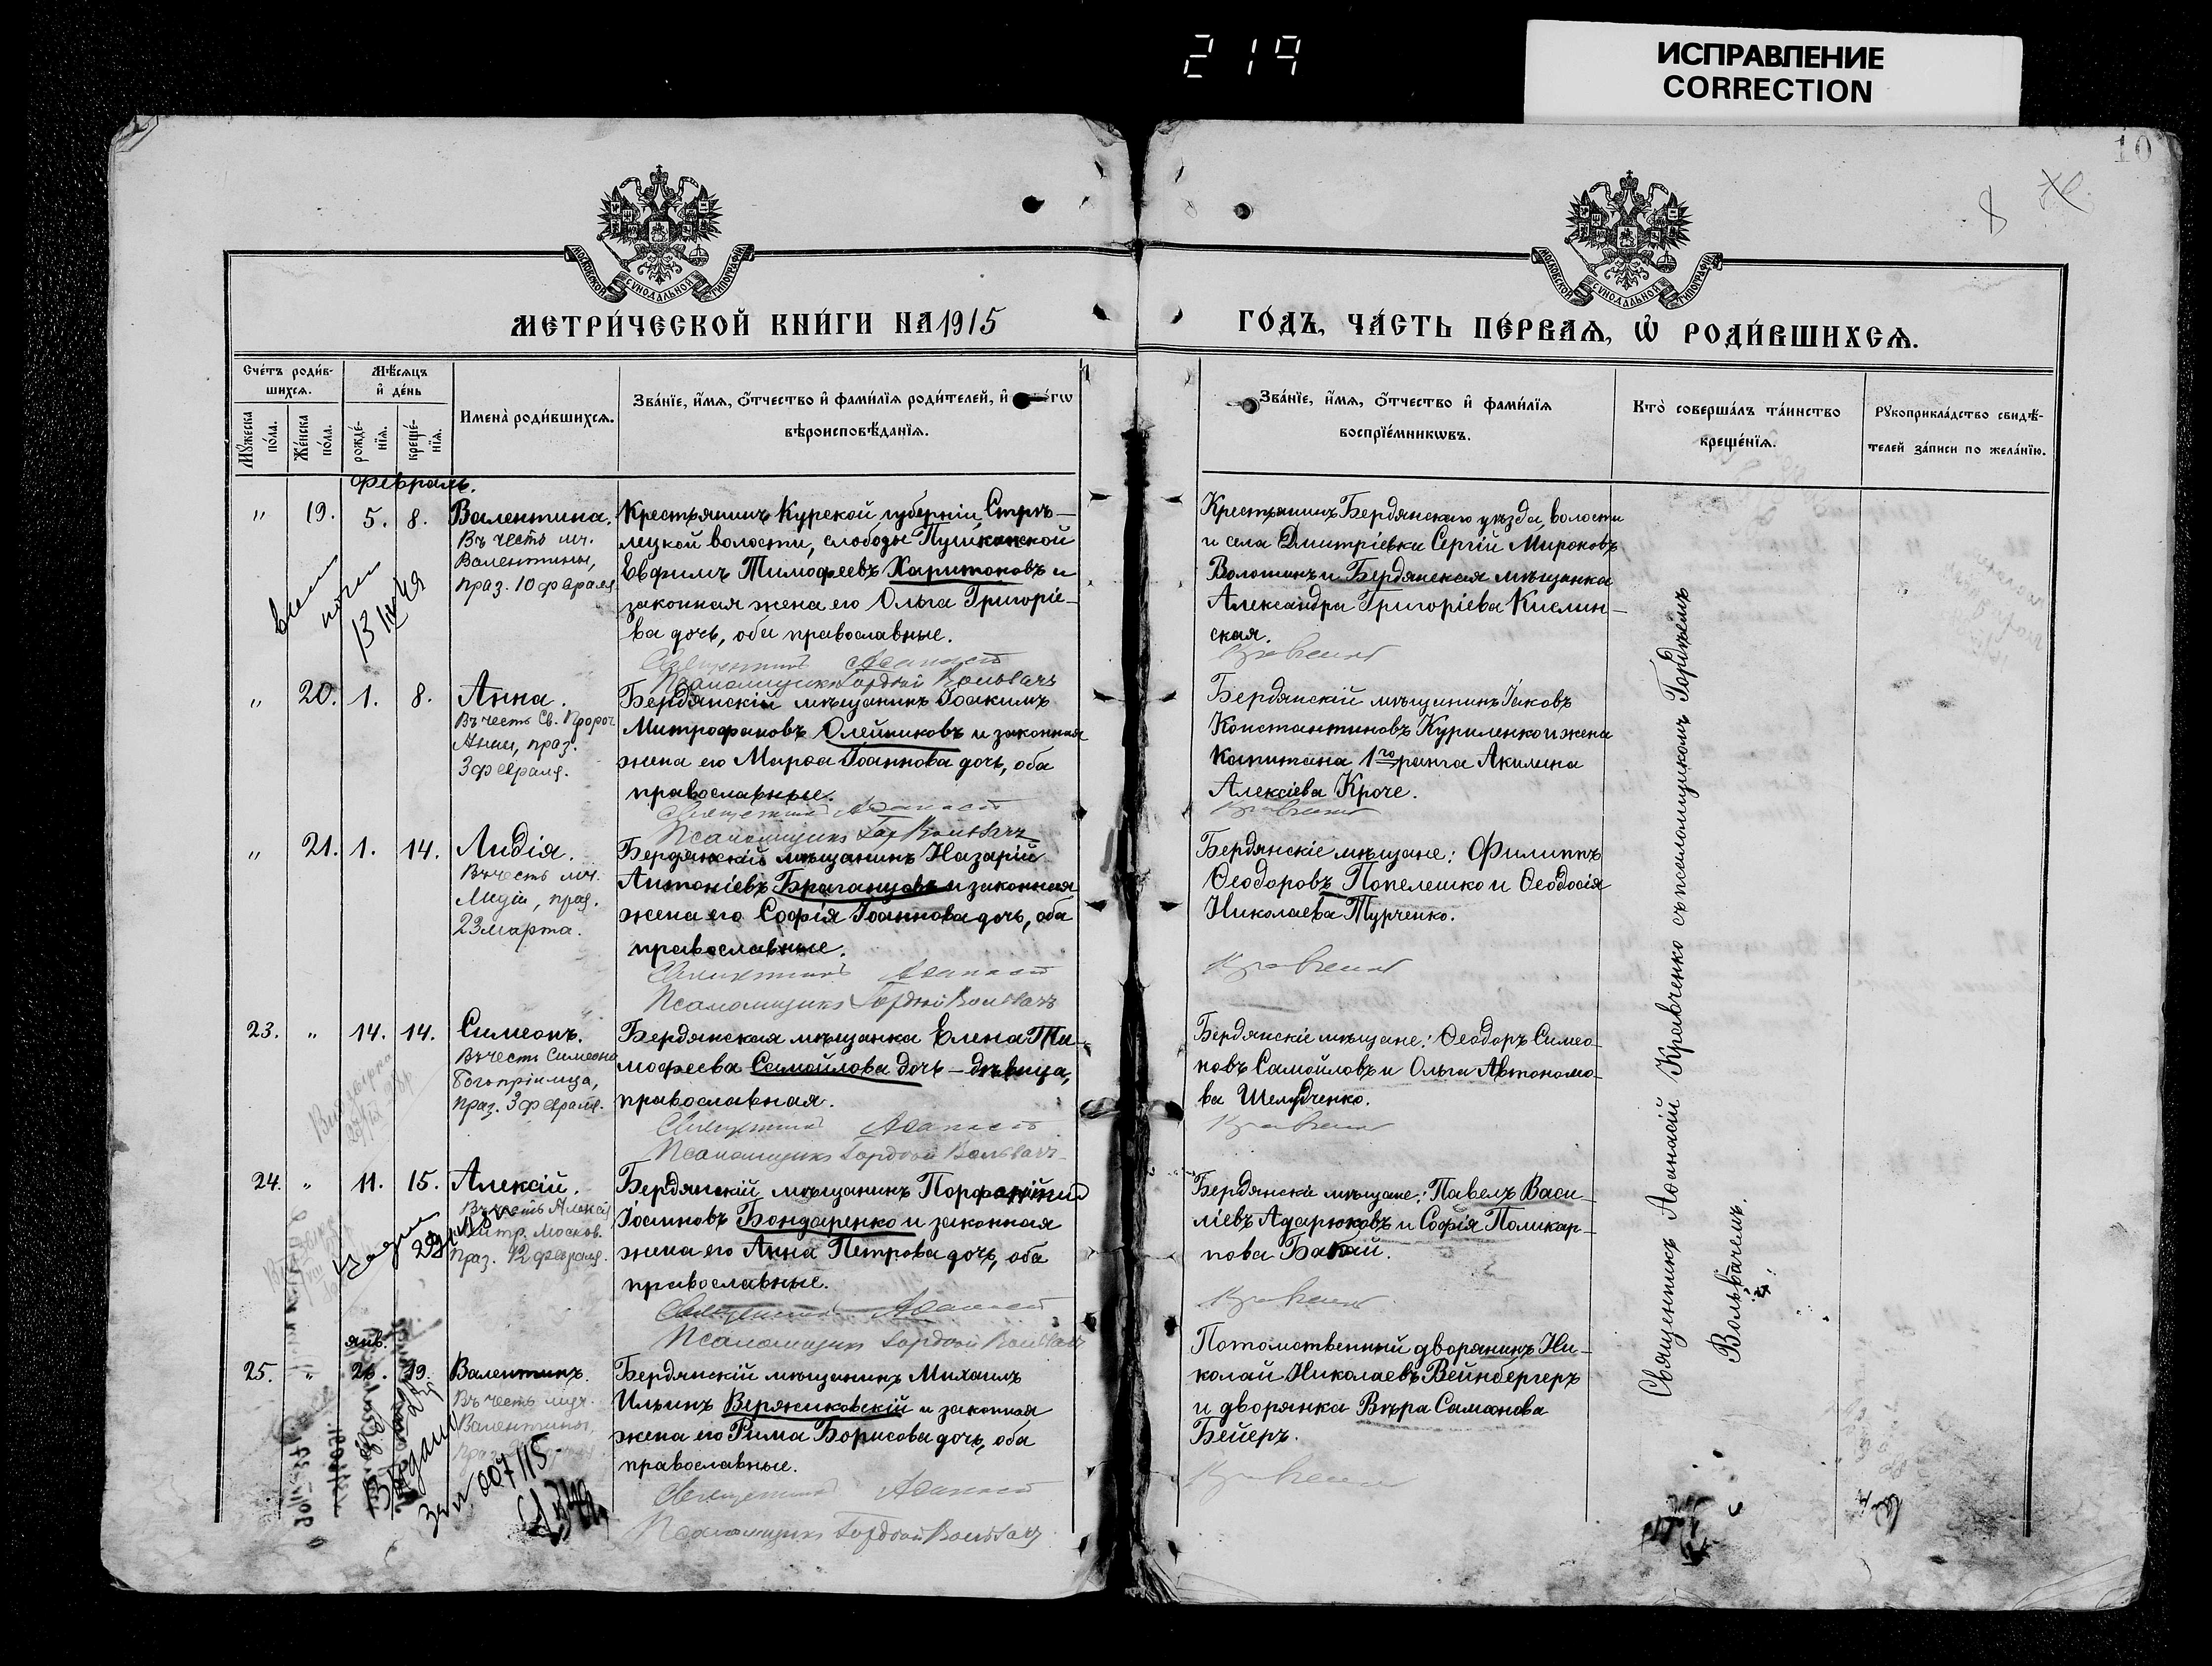 219
ИСПРАВЛЕНИЕ
CORRECTION
10
8
МОСКОВСКОЙ СѴНОДАЛЬНОЙ ТИПОГРАФІИ
МОСКОВСКОЙ СѴНОДАЛЬНОЙ ТИПОГРАФІИ
МЕТРИ́ЧЕСКОЙ КНИ́ГИ НА 1915
ГО́ДЪ, ЧА́СТЬ ПЕ́РВАѦ, Ѽ РОДИ́ВШИХСѦ.
Сче́тъ роди́в-
шихсѧ.
Мѣ́сѧцъ
и҆ де́нь
Мꙋ́жеска по́ла.
Же́нска по́ла.
рожде́-
нїѧ.
креще́-
нїѧ.
И҆мена̀ роди́вшихсѧ.
Зва́нїе, и҆́мѧ, ѻ҆́тчество и҆ фами́лїѧ роди́телей, и҆
вѣроисповѣ́данїѧ.
Зва́нїе, и҆́мѧ, ѻ҆́тчество и҆ фами́лїѧ
воспрїе́мникѡвъ.
Кто̀ соверша́лъ та́инство
креще́нїѧ.
Рꙋкоприкла́дство свидѣ́-
телей за́писи по жела́нїю.
Февраль.
" 19. 5. 8. Валентина.
Въ честь мч.
Валентины,
праз. 10 февраля
Крестьянинъ Курской губерніи, Стрѣ-
лецкой волости, слободы Пушкарской
Евфимъ Тимофеевъ Харитоновъ и
законная жена его Ольга Григорie-
ва дочь, оба православные.
Священникъ Аѳанасій
Псаломщикъ Гордѣй Вольвачъ
Крестьянинъ Бердянскаго уѣзда, волости
и села Дмитріевки Сергій Мироновъ
Волошинъ и Бердянская мѣщанка
Александра Григоріева Кислин-
ская.
Кравченко
13/IV 49
" 20. 1. 8. Анна.
Въ честь Св. Пророч.
Анны, праз.
3 февраля.
Бердянскій мѣщанинъ Іоакимъ
Митрофановъ Олейниковъ и законная
жена его Марѳа Іоаннова дочь, оба
православные.
Священникъ Аѳанасій
Псаломщикъ Гор Вольвачъ
Бердянскій мѣщанинъ Іаковъ
Константиновъ Куриленко и жена
Капитана 1го ранга Акилина
Алексіева Кроче.
Кравченко
" 21. 1. 14. Лидія.
Въ честь мч.
Лидіи, праз.
23 марта.
Бердянскій мѣщанинъ Назарій
Антоніевъ Браганцовъ и законная
жена его Софія Іоаннова дочь, оба
православные.
Священникъ Аѳанасій
Псаломщикъ Гордѣй Вольвачъ
Бердянскіе мѣщане: Филиппъ
Ѳеодоровъ Попелешко и Ѳеодосія
Николаева Турченко.
Кравченко
23. " 14. 14. Симеонъ.
Въ честь Симеона
Богопріимца,
праз. 3 февраля.
Бердянская мѣщанка Елена Ти-
мофеева Самойлова дочь – дѣвица,
православная.
Священникъ Аѳанасій
Псаломщикъ Гордѣй Вольвачъ
Бердянскіе мѣщане: Ѳеодоръ Симео-
новъ Самойловъ и Ольга Автономо-
ва Шелудченко.
Кравченко
24. " 11. 15. Алексій.
Въ честь Алексія
Митр. Москов.
праз. 12 февраля.
Бердянскій мѣщанинъ Порфирій
Іоанновъ Бондаренко и законная
жена его Анна Петрова дочь, оба
православные.
Священникъ Аѳанасій
Псаломщикъ Гордѣй Вольвачъ
Бердянскіе мѣщане: Павелъ Васи-
ліевъ Адарюковъ и Софія Поликар-
пова Бабай.
Кравченко
янв.
25. " 26. 19. Валентинъ.
Въ честь муч.
Валентина,
Бердянскій мѣщанинъ Михаилъ
Ильинъ Веряжиковскій и законная
жена его Рима Борисова дочь, оба
православные.
Священникъ Аѳанасій
Псаломщикъ Гордѣй Вольвачъ
Потомственный дворянинъ Ни-
колай Николаевъ Вейнбергеръ
и дворянка Вѣра Самсонова
Бейеръ.
Кравченко
007115
Священникъ Аѳанасій Кравченко съ псаломщикомъ Гордѣемъ
Вольвачемъ.